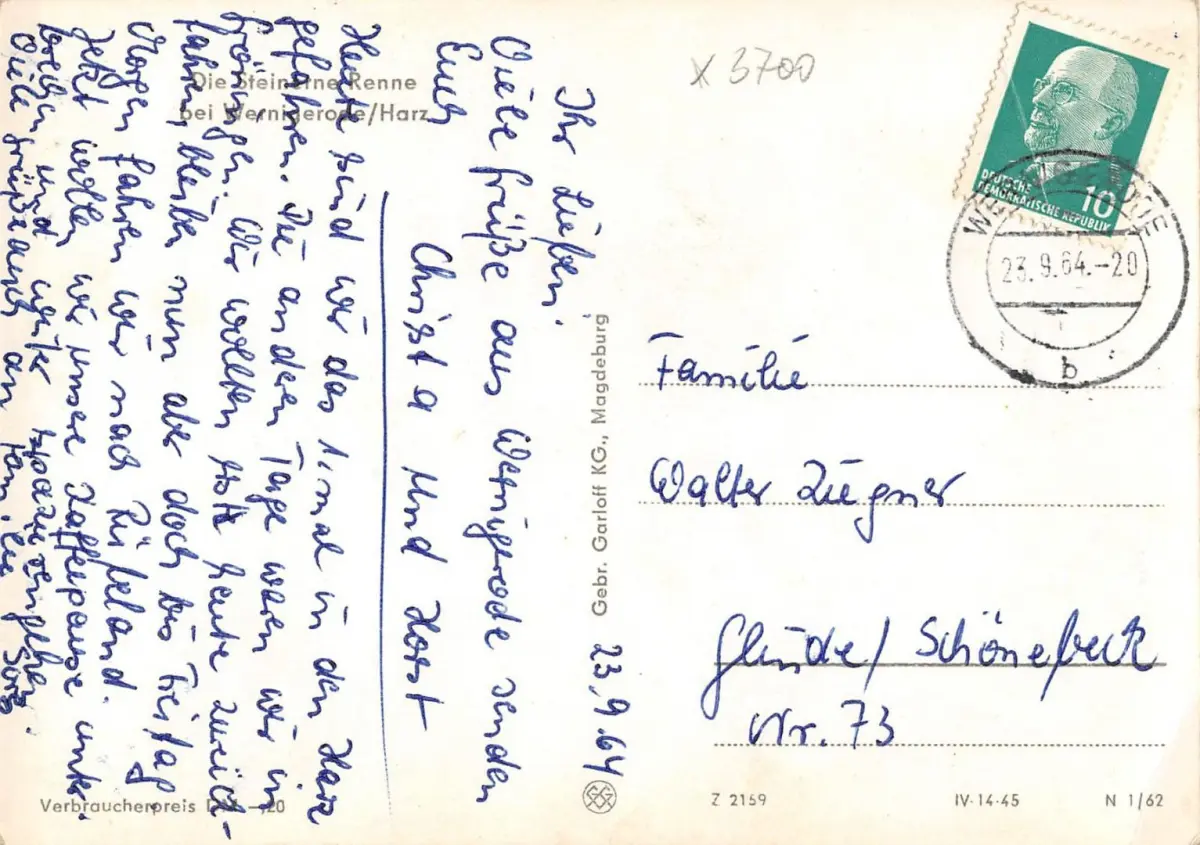 Die Steinerne Renne
bei Wernigerode/Harz
23.9.64
Ihr Lieben.
Viele Grüße aus Wernigerode senden
Euch
Christa und Horst
Heute sind wir das 1. mal in den Harz
gefahren. Die anderen Tage waren wir in
Gröningen. Wir wollten heute zurück-
fahren, bleiben nun aber doch bis Freitag.
Morgen fahren wir nach Rübeland.
Jetzt wollen wir unsere Kaffeepause unter-
brechen und weiter spazierengehen.
Viele Grüße auch an Familie
Verbraucherpreis DM -,20
Gebr. Garloff KG., Magdeburg
x 3700
DEUTSCHE
DEMOKRATISCHE REPUBLIK
10
WERNIGERODE
23.9.64.-20
b
Familie
Walter Ziegner
Glinde/Schönebeck
Nr. 73
Z 2159
IV-14-45
N 1/62